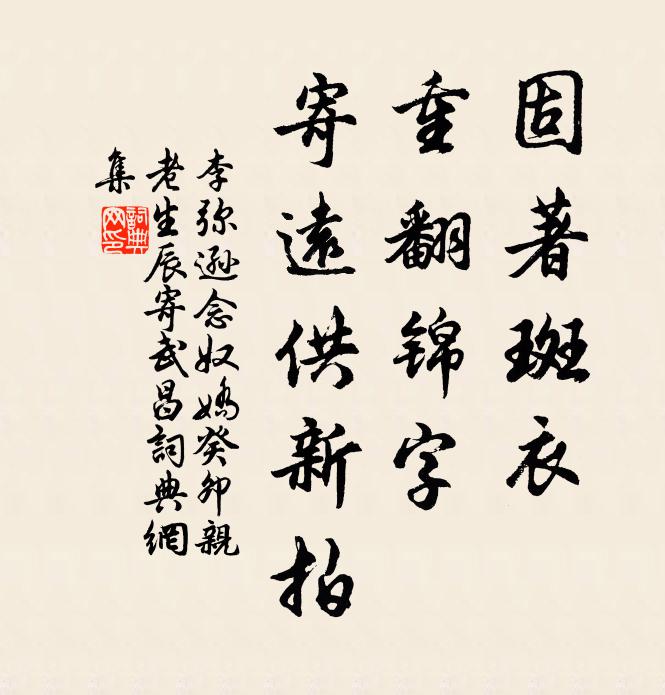 固著斑衣
重翻錦字
寄遠供新拍
李弥遜念奴嬌癸卯親
老生辰寄武昌詞典網
集
詞典
网印